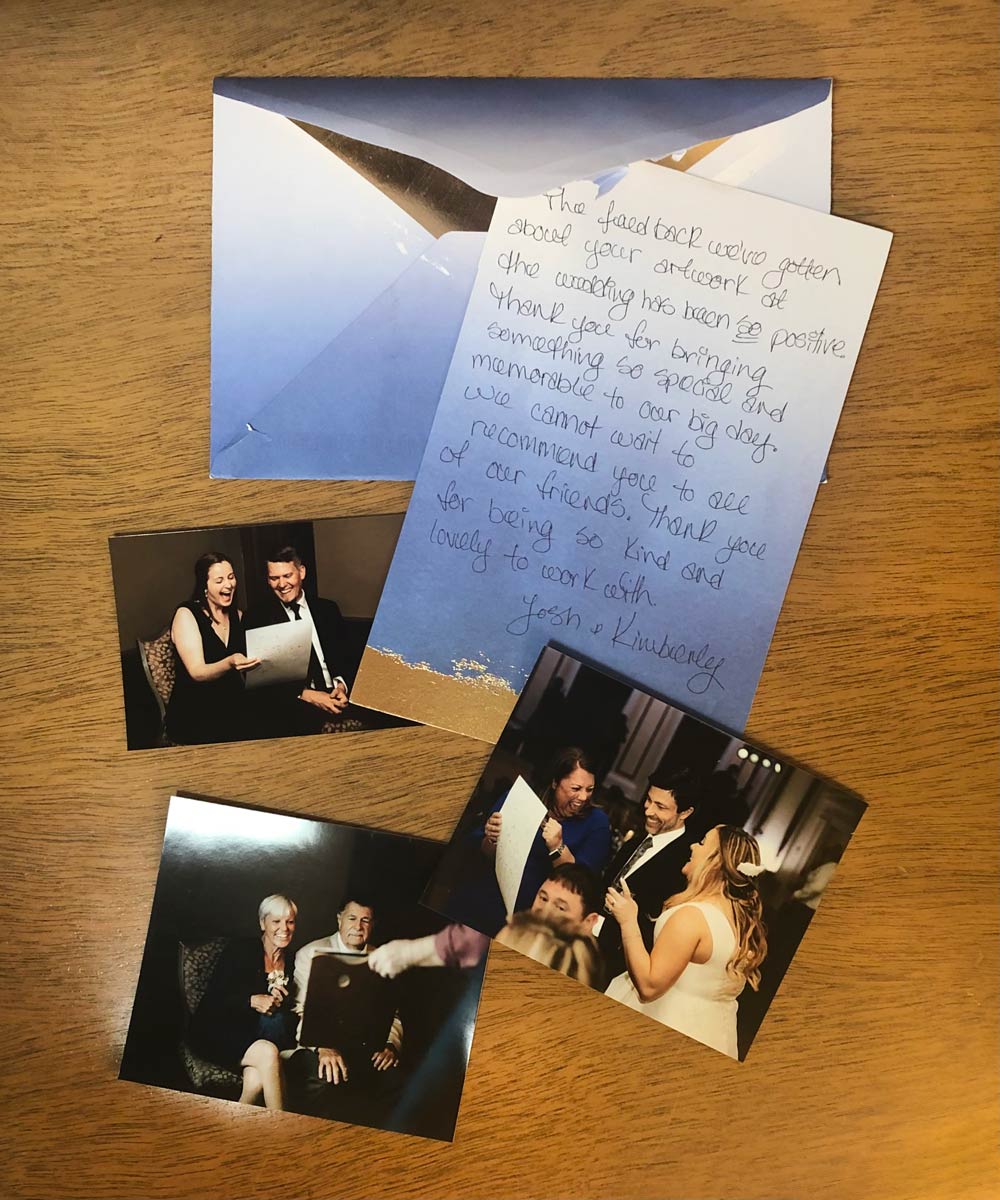 The feedback we've gotten
about your artwork at
the wedding has been so positive.
Thank you for bringing
something so special and
memorable to our big day.
We cannot wait to
recommend you to all
of our friends. Thank you
for being so kind and
lovely to work with.
Josh & Kimberly